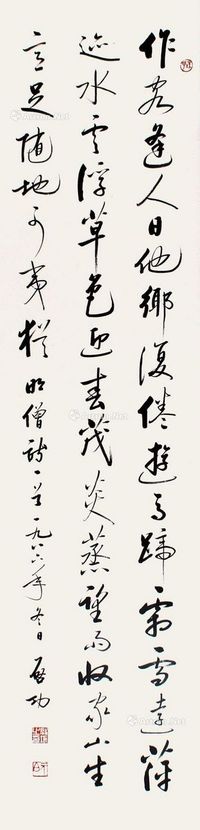 作客逢人日他鄉復倦遊馬蹄霜雪遠萍
迹水雲浮草色迎春茂炎蒸望雨收家山生
意足随地可夷猶 明僧詩一首 一九八六年冬日 啟功